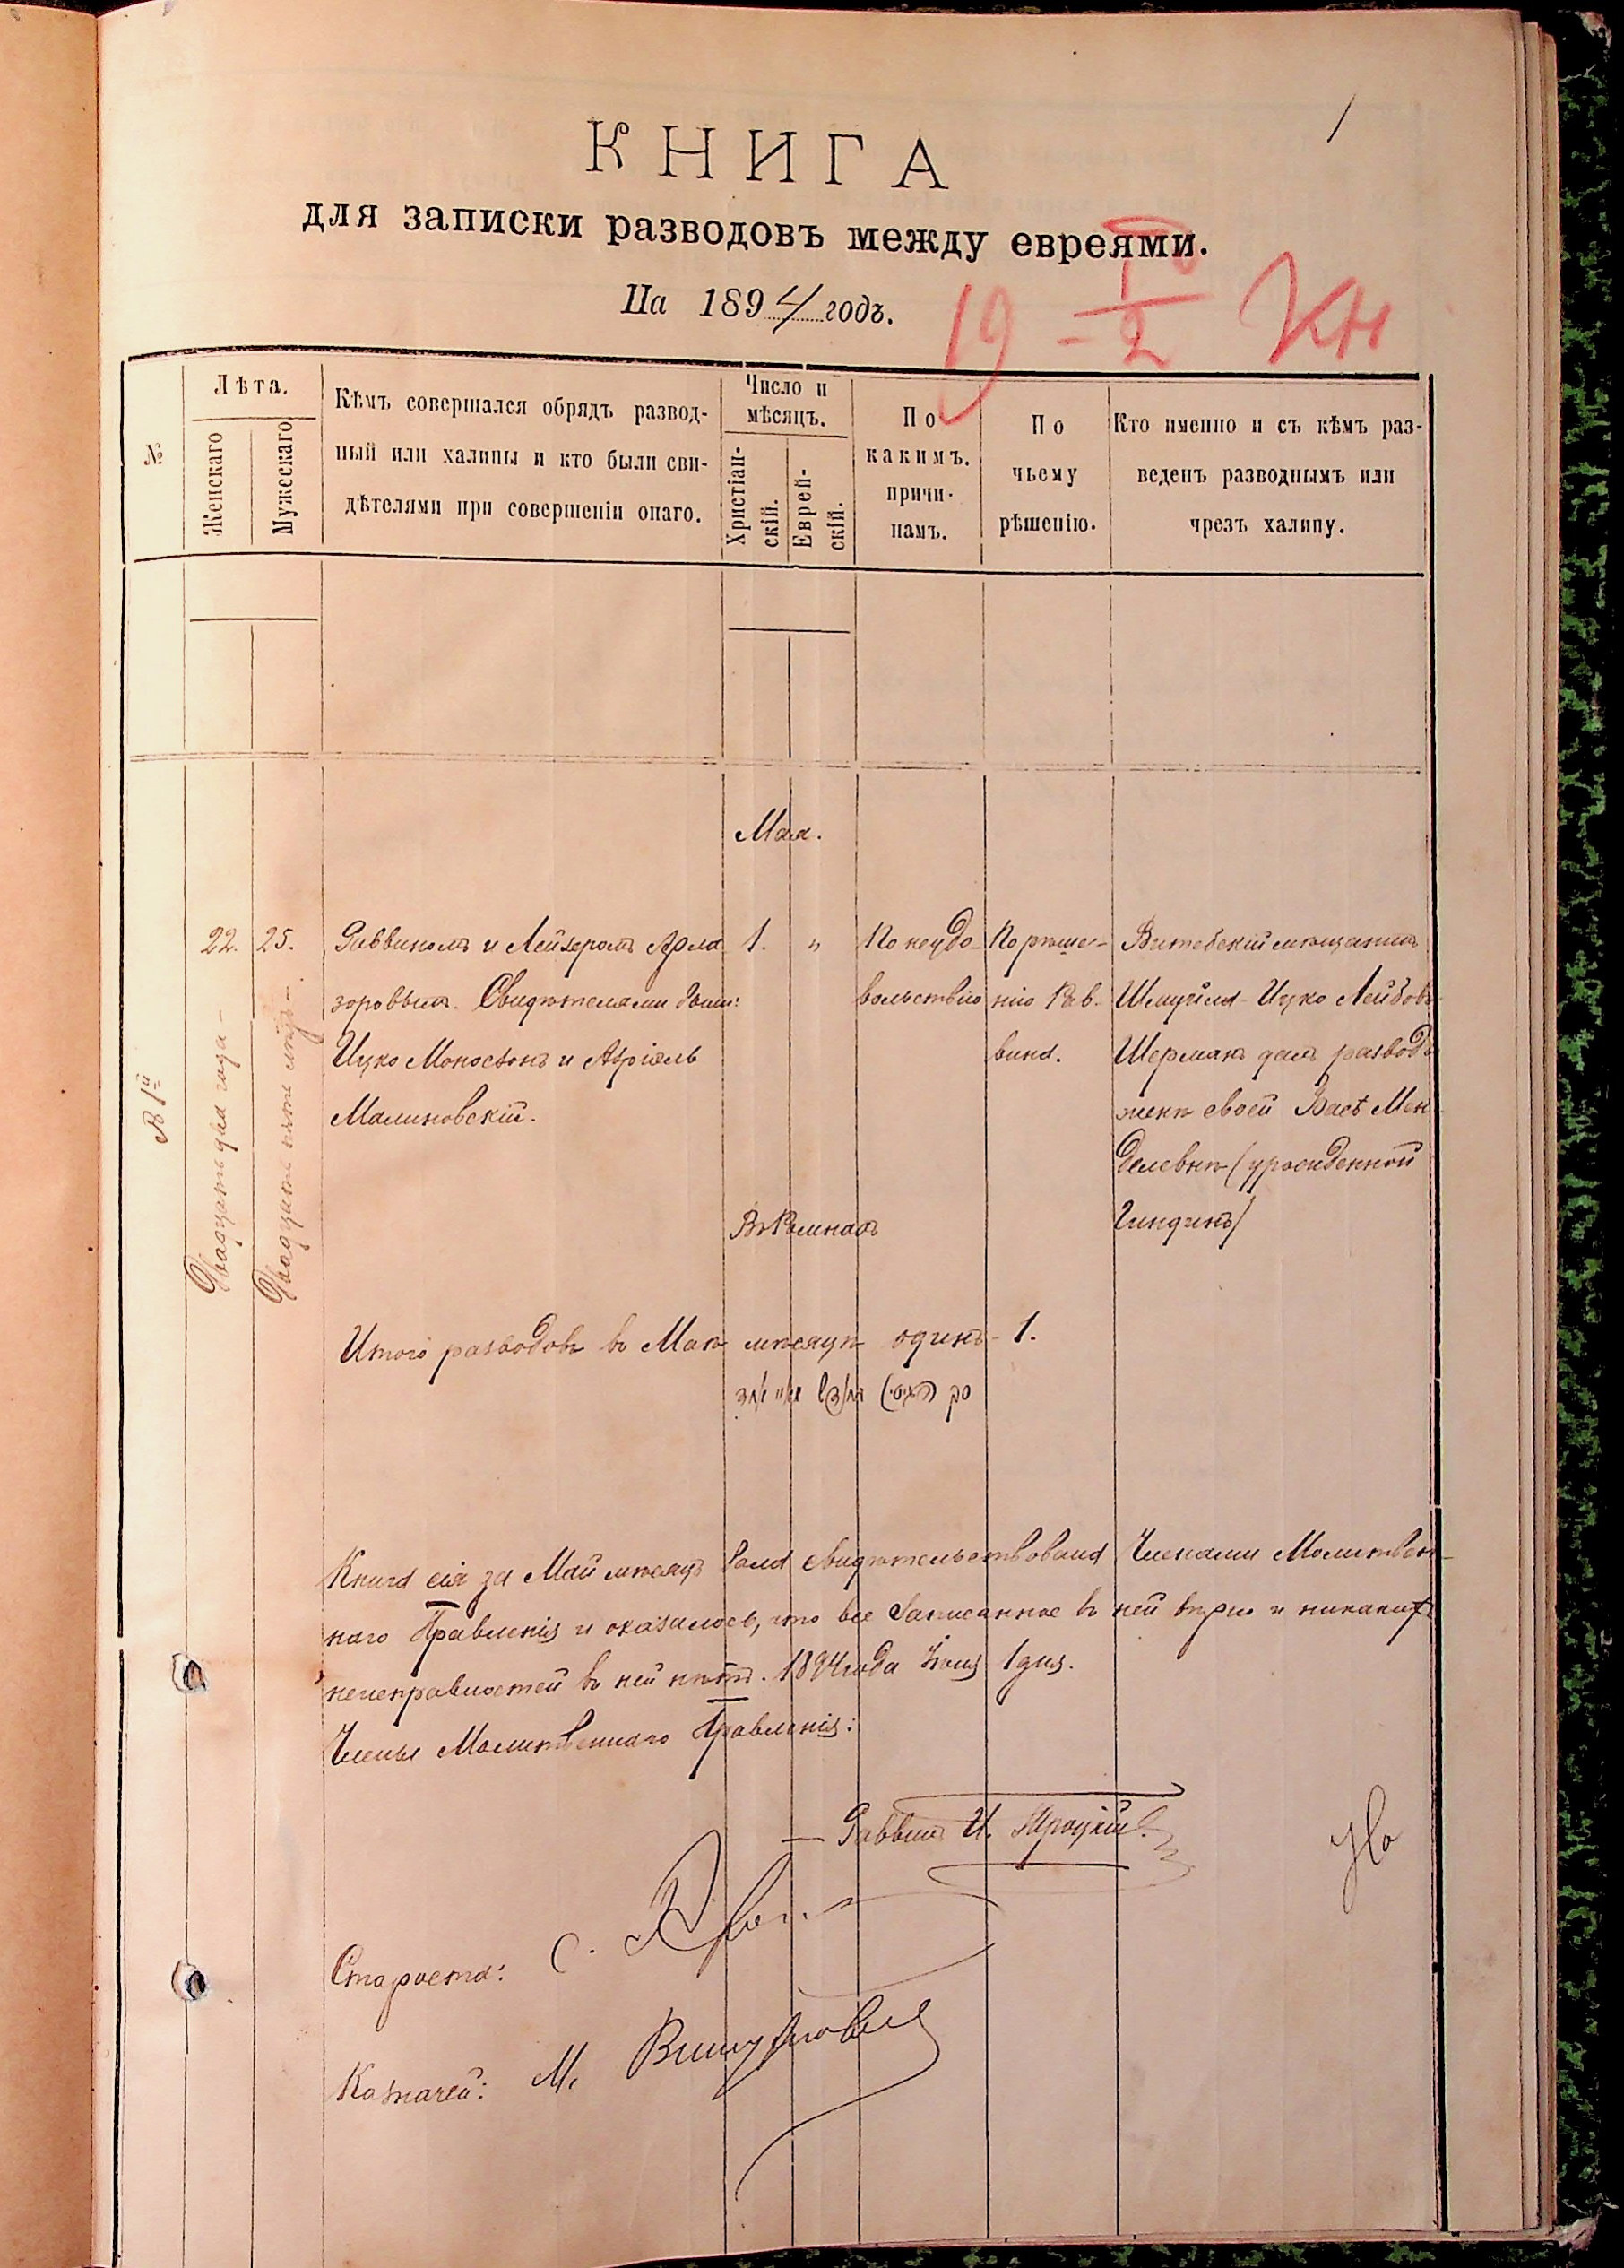 1
КНИГА
для записки разводовъ между евреями.
На 1894 годъ.
19 - 1/2 КН
№
Лѣта.
Женскаго
Мужескаго
Кѣмъ совершался обрядъ развод-
ный или халицы и кто были сви-
дѣтелями при совершеніи онаго.
Число и
мѣсяцъ.
Христіан-
скій.
Еврей-
скій.
По
какимъ.
причи-
намъ.
По
чьему
рѣшенію.
Кто именно и съ кѣмъ раз-
веденъ разводнымъ или
чрезъ халицу.
Мая.
№ 1й
22.
Двадцать два года -
25.
Двадцать пять лѣтъ -
Раввиномъ и Лейзеромъ
Свидѣтелями были:
Ицко Моносзонъ и Азріель
Малиновскій.
1.
"
По неудо-
вольствію
По рѣше-
нію Рав-
вина.
Витебскій мѣщанинъ
Шмуйла-Ицко Лейбовъ
Шерманъ далъ разводъ
женѣ своей Басѣ Мен-
делевнѣ (урожденной
Гиндинъ)
Въ Ромнахъ
Итого разводовъ въ Маѣ мѣсяцѣ одинъ - 1.
Книга сія за Май мѣсяцъ была свидѣтельствована Членами Молитвен-
наго Правленія и оказалось, что все записанное въ ней вѣрно и никакихъ
неисправностей въ ней нѣтъ. 1894 года Іюня 1 дня.
Члены Молитвеннаго Правленія:
- Раввинъ И. Троцкій
Староста: С.
Казначей: М.
Но